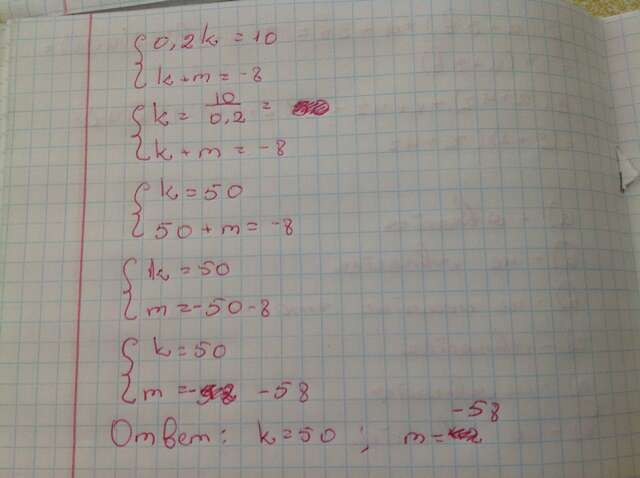 0,2k = 10
k + m = -8
k = 10/0,2 =
k + m = -8
k = 50
50 + m = -8
k = 50
m = -50 - 8
k = 50
m = -58
Ответ: k = 50 ; m = -58